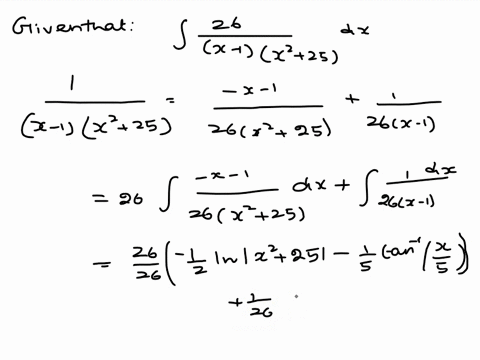 Giventhat: ∫ 26/((x-1)(x²+25)) dx
1/((x-1)(x²+25)) = (-x-1)/(26(x²+25)) + 1/(26(x-1))
= 26 ∫ (-x-1)/(26(x²+25)) dx + ∫ 1/(26(x-1)) dx
= 26/26 (-1/2 ln|x²+25| - 1/5 tan⁻¹(x/5))
+ 1/26